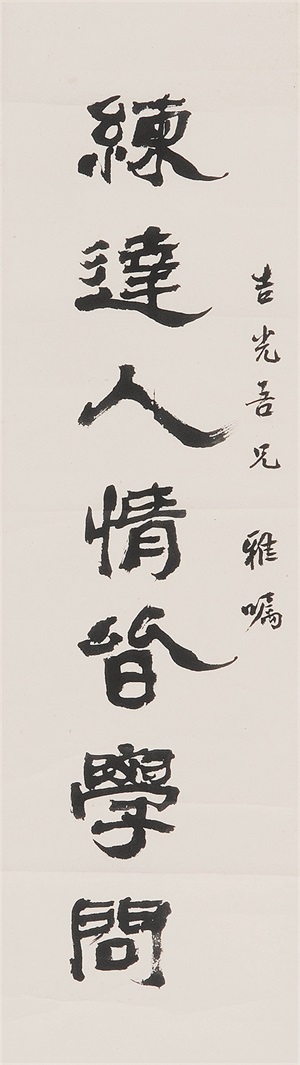 吉光吾兄 雅嘱
練達人情皆學問